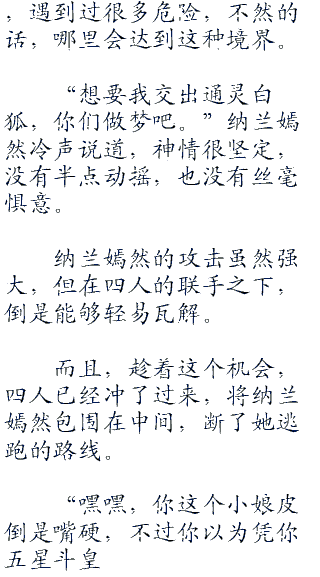 ，遇到过很多危险，不然的
话，哪里会达到这种境界。
“想要我交出通灵白
狐，你们做梦吧。”纳兰嫣
然冷声说道，神情很坚定，
没有半点动摇，也没有丝毫
惧意。
纳兰嫣然的攻击虽然强
大，但在四人的联手之下，
倒是能够轻易瓦解。
而且，趁着这个机会，
四人已经冲了过来，将纳兰
嫣然包围在中间，断了她逃
跑的路线。
“嘿嘿，你这个小娘皮
倒是嘴硬，不过你以为凭你
五星斗皇